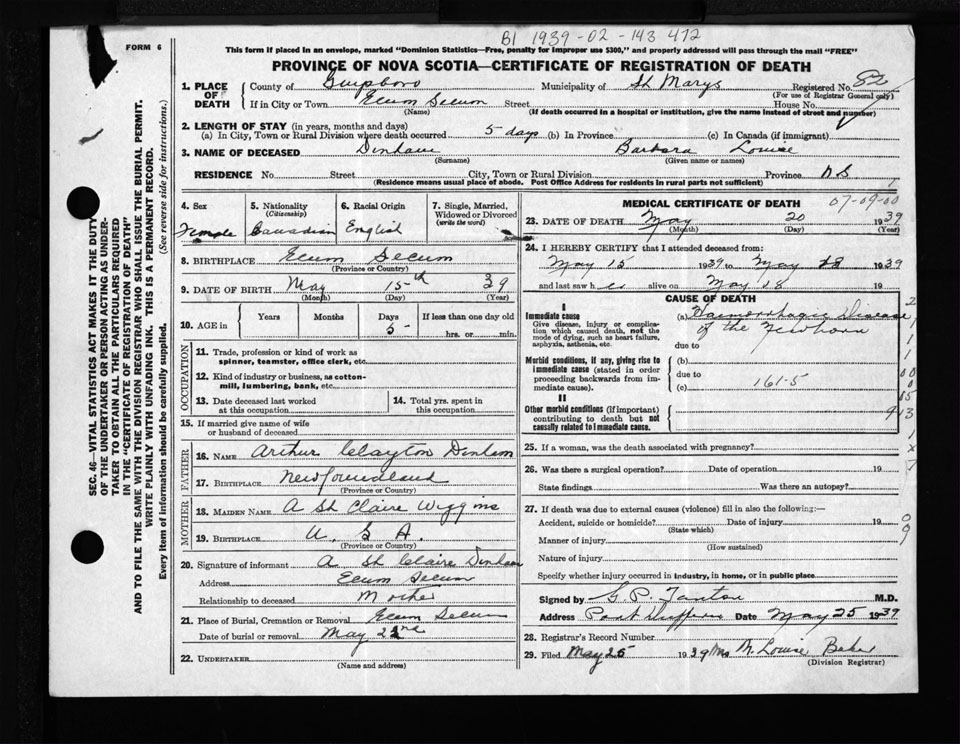 B1 1939-02-143 472
FORM 6
This form if placed in an envelope, marked "Dominion Statistics—Free, penalty for improper use $300," and properly addressed will pass through the mail "FREE"
PROVINCE OF NOVA SCOTIA—CERTIFICATE OF REGISTRATION OF DEATH
1. PLACE OF DEATH
County of Guysboro Municipality of St Marys Registered No. 82
(For use of Registrar General only)
If in City or Town Ecum Secum Street House No.
(Name) (If death occurred in a hospital or institution, give the name instead of street and number)
2. LENGTH OF STAY (in years, months and days)
(a) In City, Town or Rural Division where death occurred 5 days (b) In Province (c) In Canada (if immigrant)
3. NAME OF DECEASED Dinham Barbara Louise
(Surname) (Given name or names)
RESIDENCE No. Street City, Town or Rural Division Province N S
(Residence means usual place of abode. Post Office Address for residents in rural parts not sufficient)
4. Sex 5. Nationality (Citizenship) 6. Racial Origin 7. Single, Married, Widowed or Divorced (write the word)
Female Canadian English
8. BIRTHPLACE Ecum Secum
(Province or Country)
9. DATE OF BIRTH May 15th 39
(Month) (Day) (Year)
10. AGE in Years Months Days If less than one day old
5 hrs. or min.
OCCUPATION
11. Trade, profession or kind of work as spinner, teamster, office clerk, etc.
12. Kind of industry or business, as cotton-mill, lumbering, bank, etc.
13. Date deceased last worked at this occupation
14. Total yrs. spent in this occupation
15. If married give name of wife or husband of deceased
FATHER
16. NAME Arthur Clayton Dinham
17. BIRTHPLACE Newfoundland
(Province or Country)
MOTHER
18. MAIDEN NAME A St Claire Wiggins
19. BIRTHPLACE U. S A.
(Province or Country)
20. Signature of informant A St Claire Dinham
Address Ecum Secum
Relationship to deceased Mother
21. Place of Burial, Cremation or Removal Ecum Secum
Date of burial or removal May 22nd
22. UNDERTAKER
(Name and address)
MEDICAL CERTIFICATE OF DEATH 07-09-00
23. DATE OF DEATH May 20 1939
(Month) (Day) (Year)
24. I HEREBY CERTIFY that I attended deceased from:
May 15 1939 to May 18 1939
and last saw her alive on May 18
CAUSE OF DEATH
I
Immediate cause
Give disease, injury or complication which caused death, not the mode of dying, such as heart failure, asphyxia, asthenia, etc.
(a) Haemorrhagic Disease
of the Newborn
due to
Morbid conditions, if any, giving rise to immediate cause (stated in order proceeding backwards from immediate cause).
(b)
due to
(c) 161-5
II
Other morbid conditions (if important) contributing to death but not causally related to immediate cause.
25. If a woman, was the death associated with pregnancy?
26. Was there a surgical operation? Date of operation 19
State findings Was there an autopsy?
27. If death was due to external causes (violence) fill in also the following:—
Accident, suicide or homicide? Date of injury 19
(State which)
Manner of injury
(How sustained)
Nature of injury
Specify whether injury occurred in industry, in home, or in public place
Signed by G. P. M.D.
Address Port Dufferin Date May 25 1939
28. Registrar's Record Number
29. Filed May 25 1939 Mrs M. Louise Baker
(Division Registrar)
SEC. 46—VITAL STATISTICS ACT MAKES IT THE DUTY
OF THE UNDERTAKER OR PERSON ACTING AS UNDER-
TAKER TO OBTAIN ALL THE PARTICULARS REQUIRED
IN THE "CERTIFICATE OF REGISTRATION OF DEATH"
AND TO FILE THE SAME WITH THE DIVISION REGISTRAR WHO SHALL ISSUE THE BURIAL PERMIT.
WRITE PLAINLY WITH UNFADING INK. THIS IS A PERMANENT RECORD.
Every item of information should be carefully supplied. (See reverse side for instructions.)